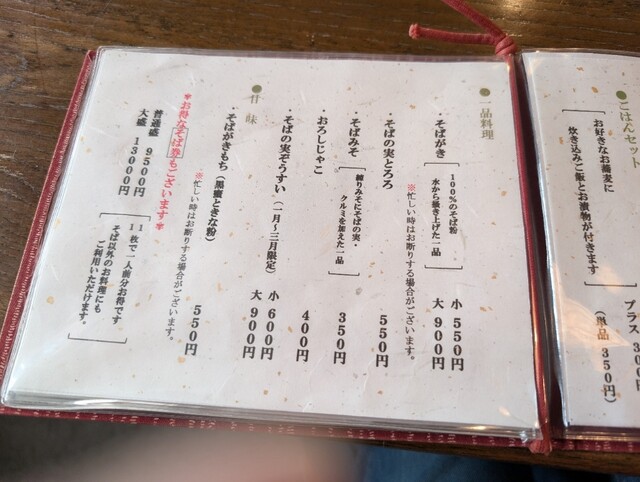 ●ごはんセット
お好きなお蕎麦に
炊き込みご飯とお漬物が付きます
プラス 3
(単品 350円)
●一品料理
・そばがき
100%のそば粉
水から掻き上げた一品
小 550円
大 900円
※忙しい時はお断りする場合がございます。
・そばの実とろろ 550円
・そばみそ
練りみそにそばの実・
クルミを加えた一品
350円
・おろしじゃこ 400円
・そばの実ぞうすい(二月~三月限定)
小 600円
大 900円
●甘味
・そばがきもち(黒蜜ときな粉) 550円
※忙しい時はお断りする場合がございます。
*お得なそば券もございます*
普通盛 9500円
大盛 13000円
11枚で一人前分お得です
そば以外のお料理にも
ご利用いただけます。